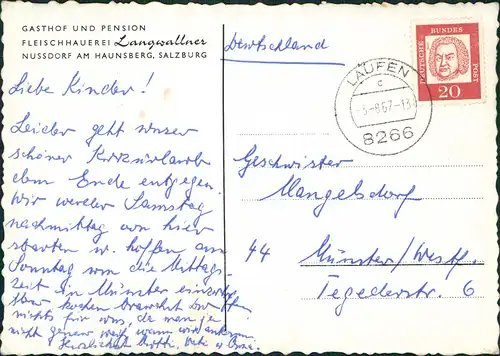 GASTHOF UND PENSION
FLEISCHHAUEREI Langwallner
NUSSDORF AM HAUNSBERG, SALZBURG
Liebe Kinder!
Leider geht unser
schöner Kurzurlaub
dem Ende entgegen.
Wir werden Samstag
nachmittag von hier
starten u. hoffen am
Sonntag um die Mittags-
zeit in Münster einzutreffen
kochen braucht Ihr
nichts für uns, da man ja
nicht genau weiß, wann wir ankommen
Herzlichst Mutti, Vati u.
Deutschland
LAUFEN
c
-5-8.67-13
8266
DEUTSCHE BUNDESPOST
20
Geschwister
Mangelsdorf
44 Münster/Westf.
Tegederstr. 6